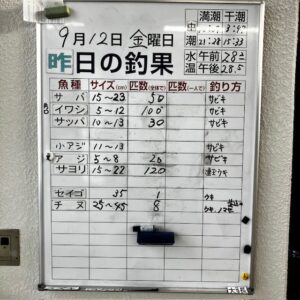 9月12日 金曜日
昨日の釣果
満潮 干潮
中潮
21:28 15:33
水温 午前 28.2
午後 28.5
魚種 サイズ(cm) 匹数(全体で) 匹数(一人で) 釣り方
サバ 15~23 50 サビキ
イワシ 5~12 100 サビキ
サッパ 10~13 30 サビキ
小アジ 11~13 サビキ
アジ 5~8 20 サビキ
サヨリ 15~22 120 ウキ
セイゴ 35 1
チヌ 25~45 8 ウキ